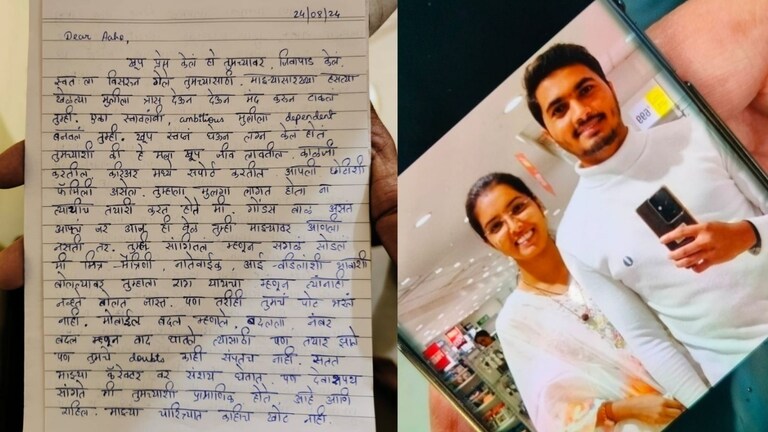 24/08/24
Dear Aaho,
खूप प्रेम केलं हो तुमच्यावर. जिवापाड केलं.
स्वतःला विसरून गेले तुमच्यासाठी. माझ्यासारख्या हसत्या
खेळत्या मुलीला त्रास देऊन देऊन मंद करून टाकलं
तुम्ही. एका स्वावलंबी, ambitious मुलीला dependent
बनवलं तुम्ही. खूप स्वप्नं घेऊन लग्न केलं होतं
तुमच्याशी की हे मला खूप जीव लावतील. काळजी
करतील करिअर मध्ये सपोर्ट करतील. आपली छोटीशी
फॅमिली असेल. तुम्हाला मुलगा लागत होता ना
त्याचीच तयारी करत होते मी गोंडस बाळं असतं
आपलं जर आज ही वेळ तुम्ही माझ्यावर आणली
नसती तर. तुम्ही सांगितलं म्हणून सगळं सोडलं
मी मित्र मैत्रिणी, नातेवाईक, आई वडिलांशी भावाशी
बोलल्यावर तुम्हाला राग यायचा म्हणून त्यांनाही
नव्हते बोलत जास्त. पण तरीही तुमचं पोट भरलं
नाही. मोबाईल बदल म्हणाले, बदलला. नंबर
बदल म्हणून वाद घातले त्यासाठी पण तयार झाले
पण तुमचे doubts काही संपतच नाही. सतत
माझ्या कॅरेक्टर वर संशय घेतात. पण देवाशपथ
सांगते मी तुमच्याशी प्रामाणिक होते. आहे आणि
राहिल. माझ्या चारित्र्यात काहीच खोट नाही.